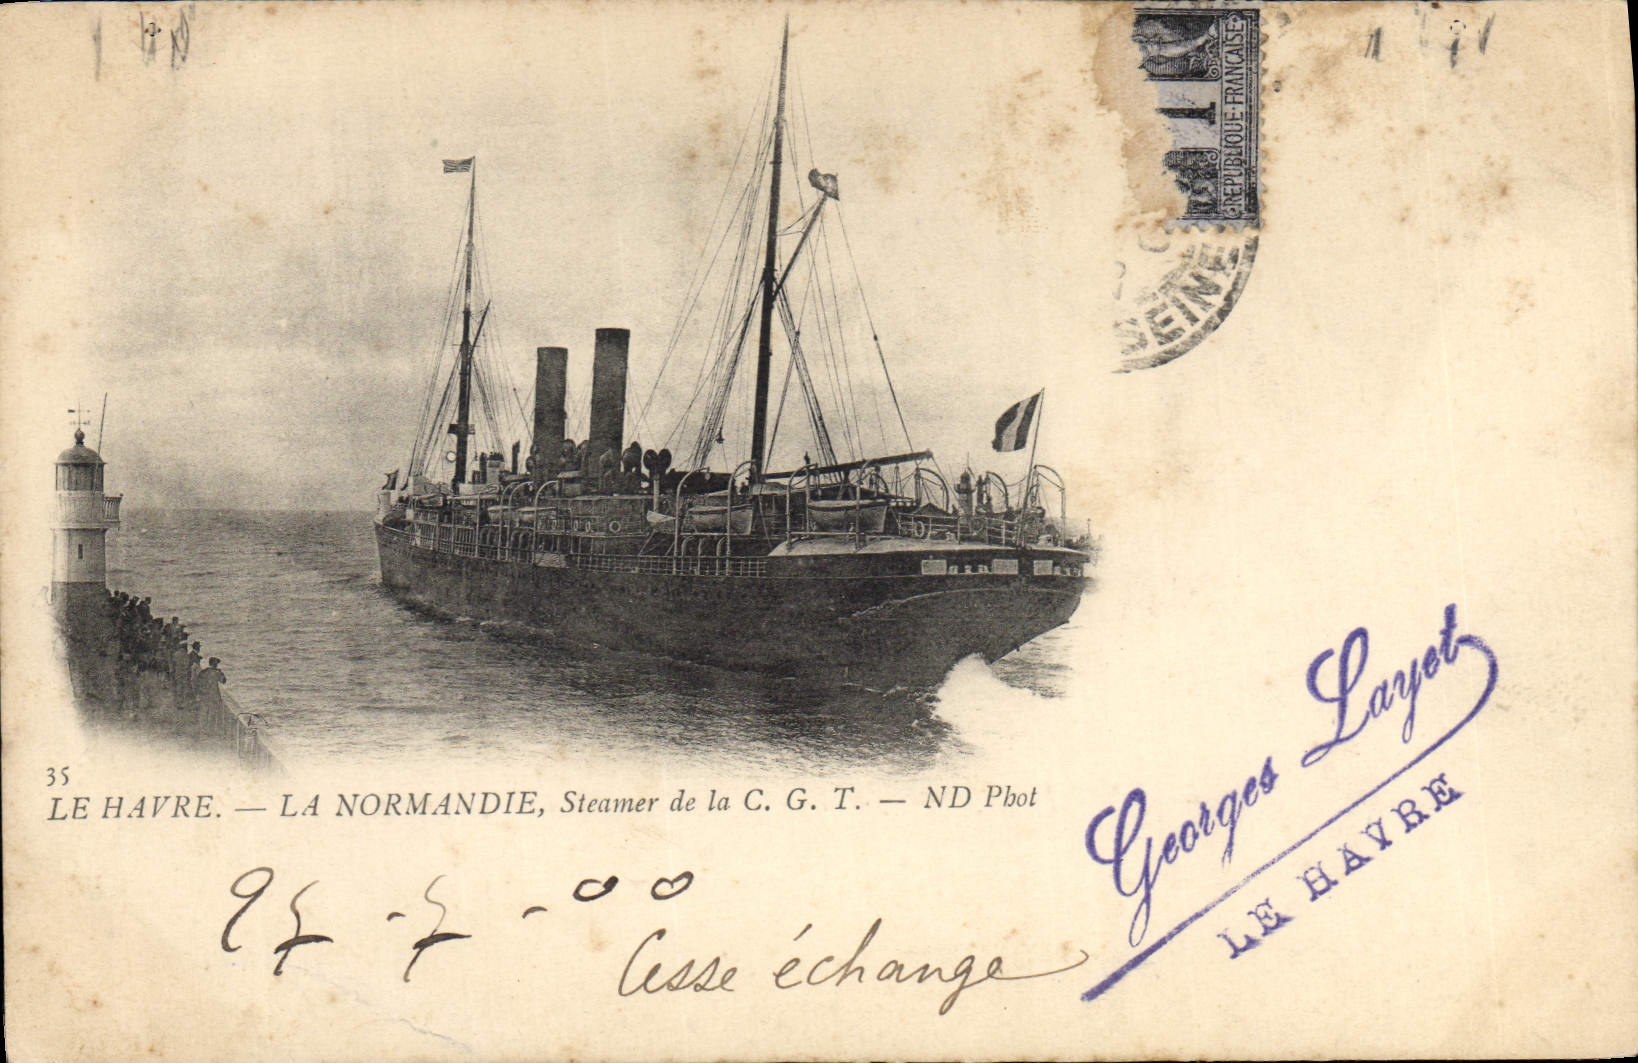 REPUBLIQUE·FRANÇAISE
SEINE
35
LE HAVRE. — LA NORMANDIE, Steamer de la C. G. T. — ND Phot
27-7-00
Cesse échange
Georges Layet
LE HAVRE